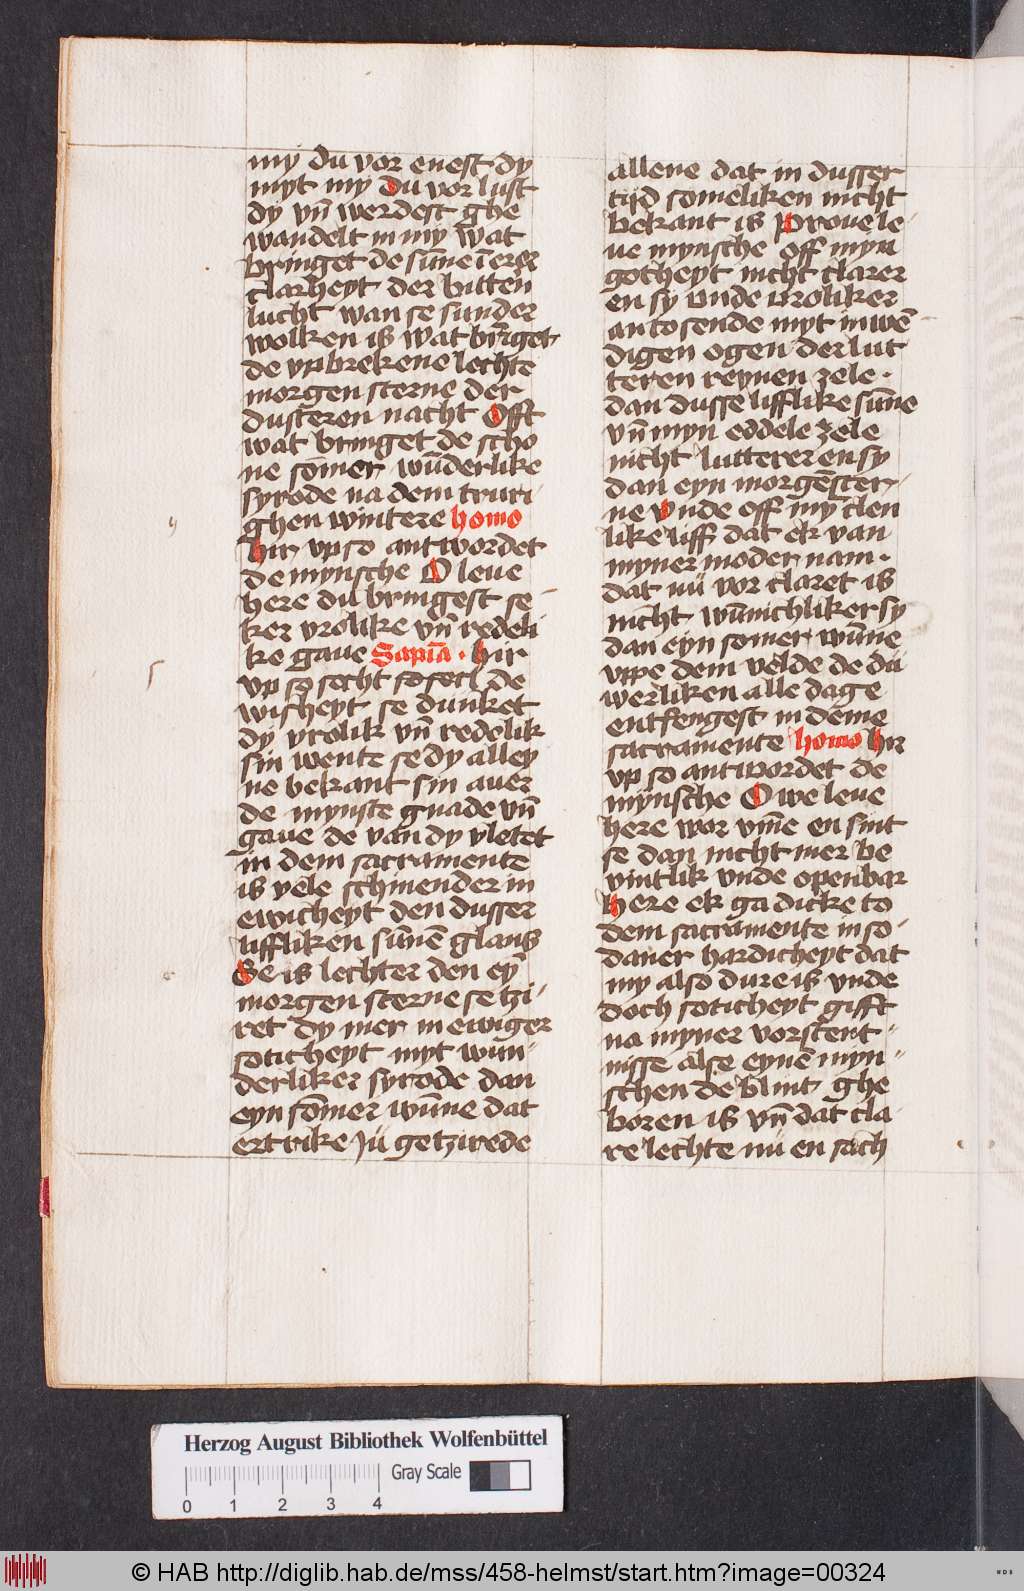 my du vor enest dy
myt my du vor lust
dy vn̄ werdest ghe
wandelt in my wat
bringet de sūne ī erer
clarheyt der bitten
lucht wan se sunder
wolken is wat brīget
de vpbrekene lechte
morgen sterne der
dusteren nacht Offt
wat bringet de scho
ne sōmer wūderlike
syrode na dem truri
ghen wintere homo
hir vp so antwordet
de mynsche O leue
here du bringest se-
ker vrolike vn̄ redeli
ke gaue Sapiā · hir
vp so secht so de
wisheyt se dunket
dy vrolik vn̄ redelik
sin wente se dy alley
ne bekant sin auer
de mynste gnade vn̄
gaue de van dy vletet
in dem sacramente
is vele schinender in
ewicheyt den dusser
liffliken sūnē glans
Se is lechter den ey̅
morgen sterne se tzi-
ret dy mer in ewiger
soticheyt myt wun-
derliker syrode dan
eyn sōmer wūne dat
ertrike ju getzirede
allene dat in dusser
tijd someliken nicht
bekant is Proue le-
ue mynsche off myn
gotheyt nicht clarer
en sy vnde vroliker
an to sende myt inwē
digen ogen der lut
teren reynen zele ·
dan dusse lifflike sūne
vn̄ myn eddele zele
nicht lutterer en sy
dan eyn morgēster-
ne vnde off my̅ clen
like liff dat ek van
myner moder nam ·
dat nu vor claret is
nicht wūnichliker sy
dan eyn somer wūne
vppe dem velde de du
werliken alle dage
entfengest in deme
sacramente homo hir
vp so antwordet de
mynsche O we leue
here wor vm̄e en sint
se dan nicht mer be
vintlik vnde openbar
here ek ga dicke to
dem sacramente in so-
daner hardicheyt dat
my also dure is vnde
doch soticheyt gifft
na myner vorstent-
nisse alse eynē myn-
schen de blint ghe
boren is vn̄ dat cla-
re lechte nu en sach
Herzog August Bibliothek Wolfenbüttel
Gray Scale
0 1 2 3 4
© HAB http://diglib.hab.de/mss/458-helmst/start.htm?image=00324